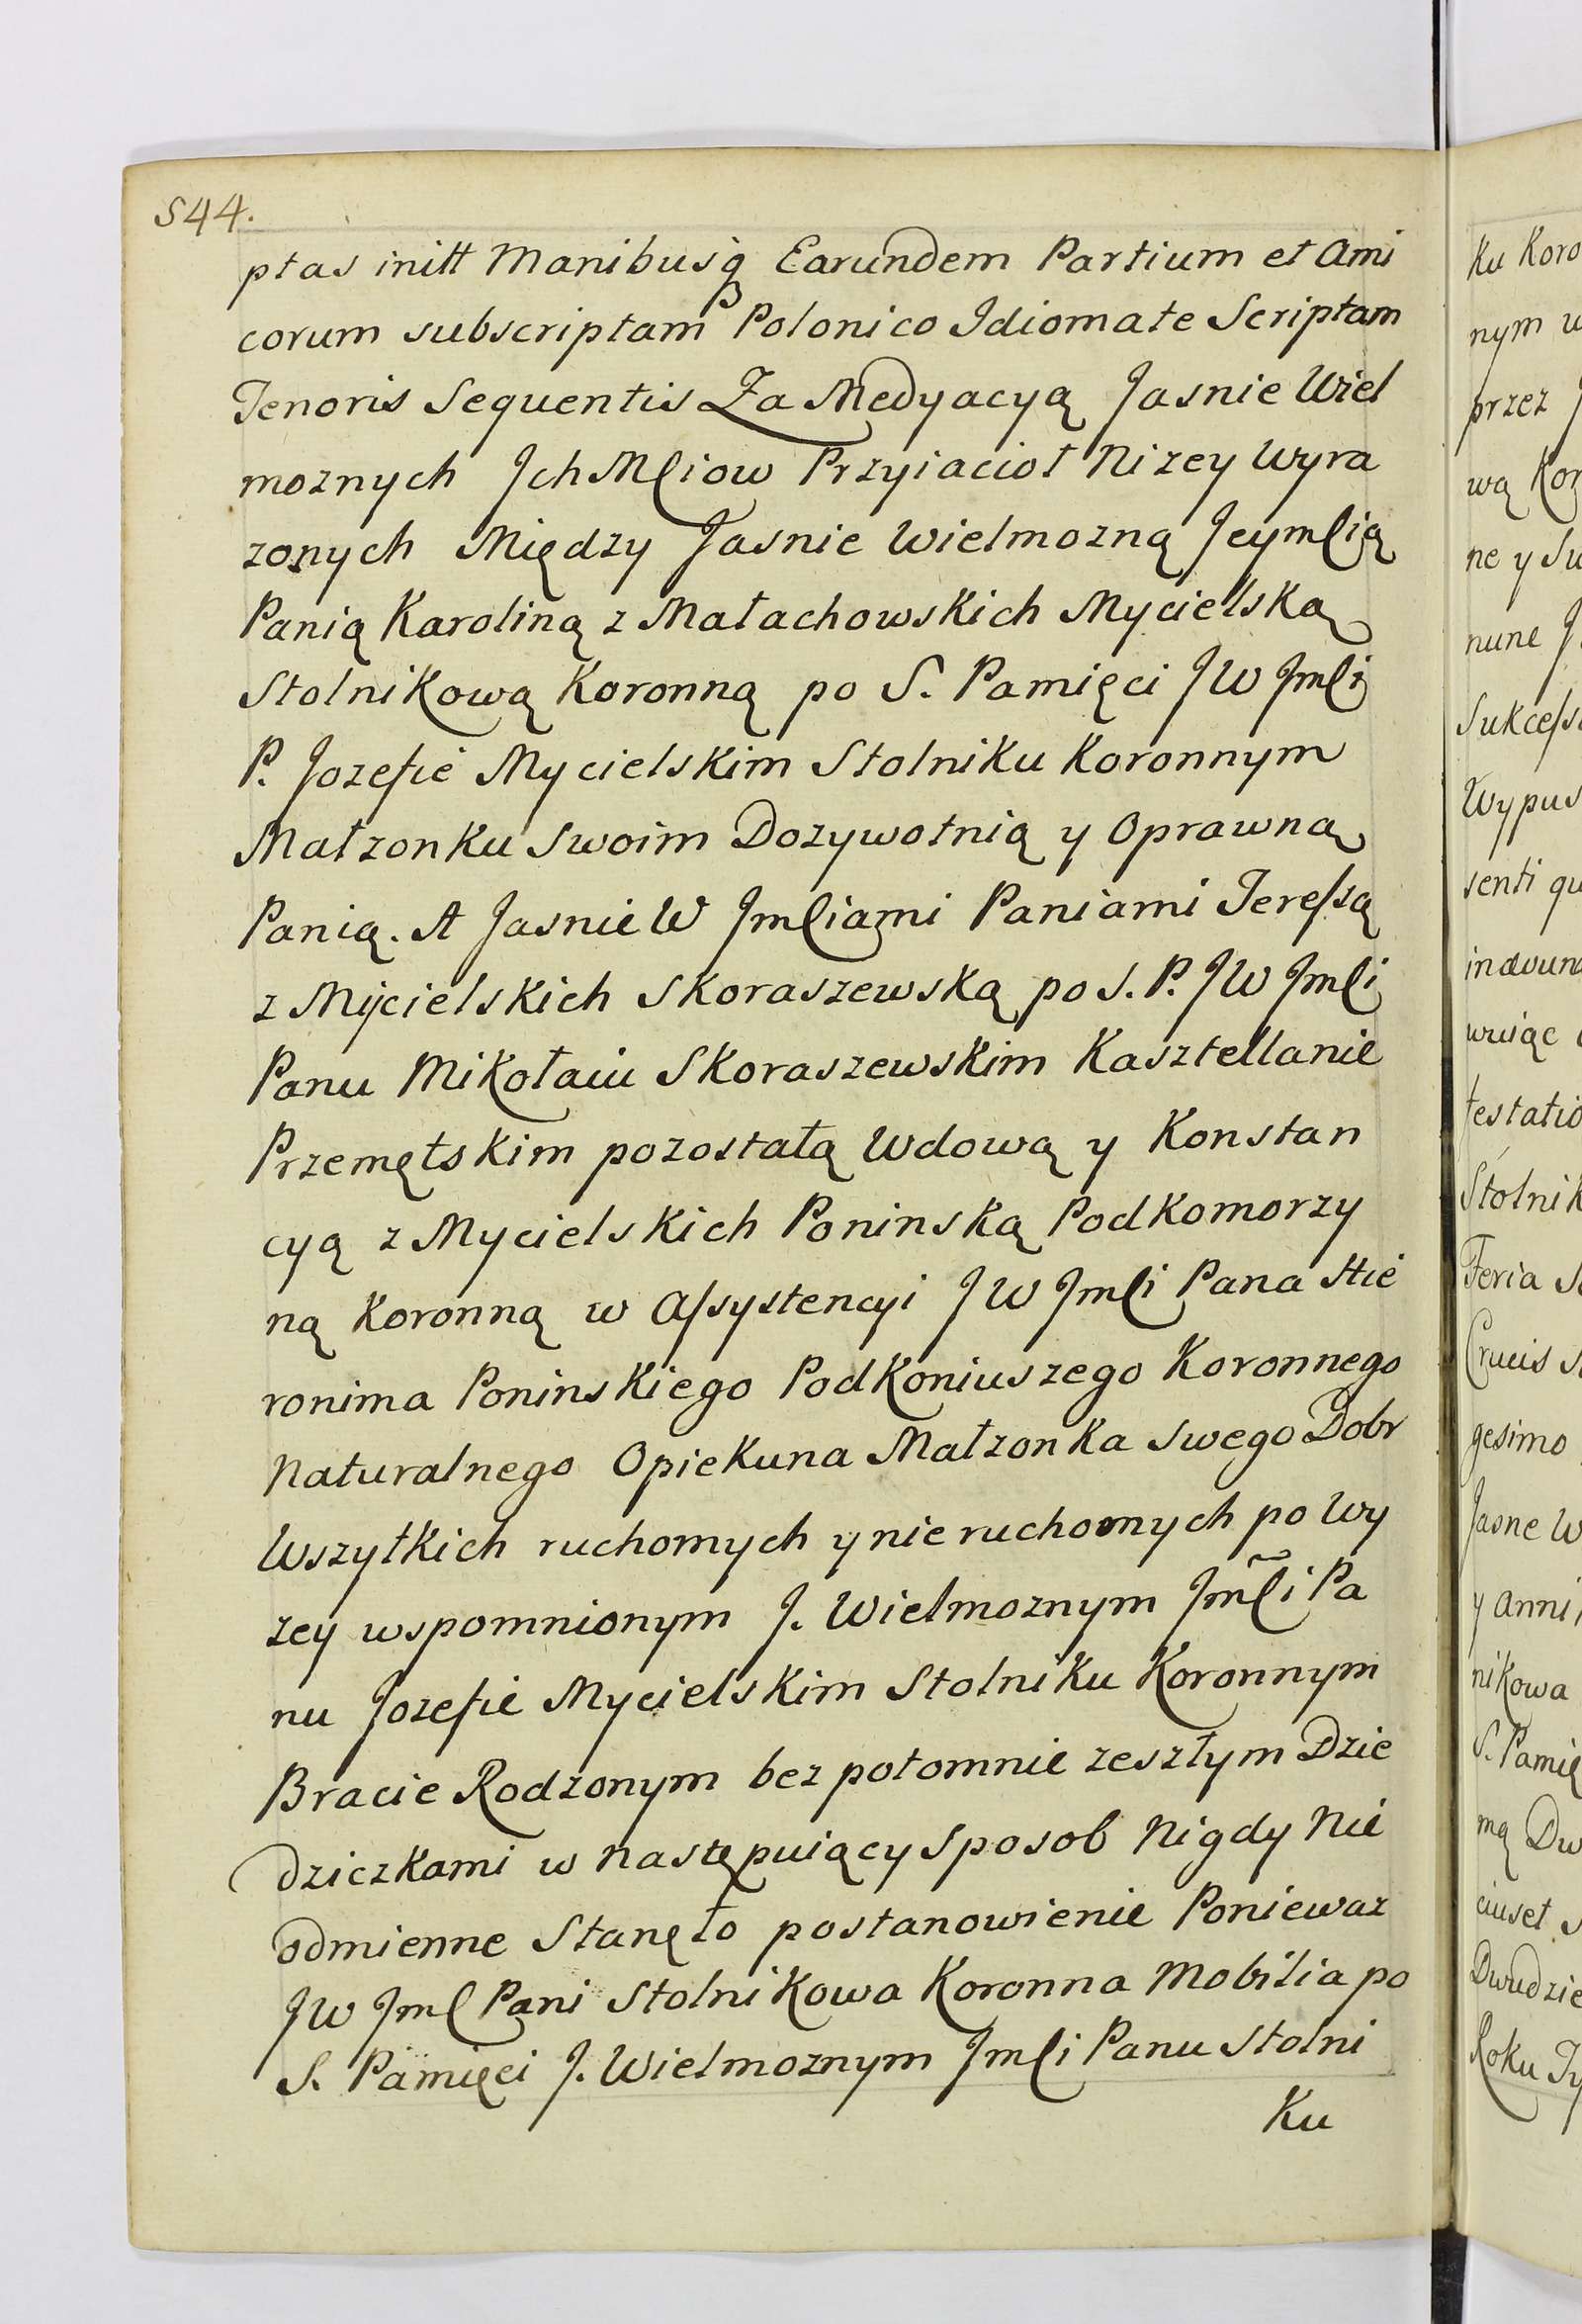 544.
ptas initt Manibusq Earundem Partium et Ami
corum subscriptam Polonico Idiomate Scriptam
Tenoris Sequentis Za Medyacyą Jasnie Wiel
moznych Ich Mſciow Przyiacioł Nizey Wyra
zonych Między Jasnie Wielmozną Jeymſcią
Panią Karoliną z Małachowskich Mycielską
Stolnikową Koronną po S. Pamięci JW Jmſci
P. Jozefie Mycielskim Stolniku Koronnym
Małzonku Swoim Dozywotnią y Oprawną
Panią. A Jasnie W Jmſciami Paniami Tereſsą
z Mycielskich Skoraszewską po S. P. JW Jmſci
Panu Mikołaiu Skoraszewskim Kasztellanie
Przemętskim pozostałą Wdową y Konstan
cyą z Mycielskich Poninską Podkomorzy
ną Koronną w Aſsystencyi JW Jmſci Pana Hie
ronima Poninskiego Podkoniuszego Koronnego
Naturalnego Opiekuna Małzonka Swego Dobr
Wszytkich ruchomych y nie ruchomych po Wy
zey wspomnionym J. Wielmoznym Jmſci Pa
nu Jozefie Mycielskim Stolniku Koronnym
Bracie Rodzonym bez potomnie zeszłym Dzie
dziczkami w następuiący Sposob Nigdy Nie
odmienne Stanęło postanowienie Poniewaz
JW Jmſc Pani Stolnikowa Koronna Mobilia po
S. Pamięci J. Wielmoznym Jmſci Panu Stolni
Ku
Ku Koro
nym
przez
wą
ne y
nune
Wypus
senti qu
testatio
Stolnik
Feria
Crucis
gesimo
Jasne W
y Anni
nikowa
S. Pamię
mą
ciuset
Dwudzie
Roku